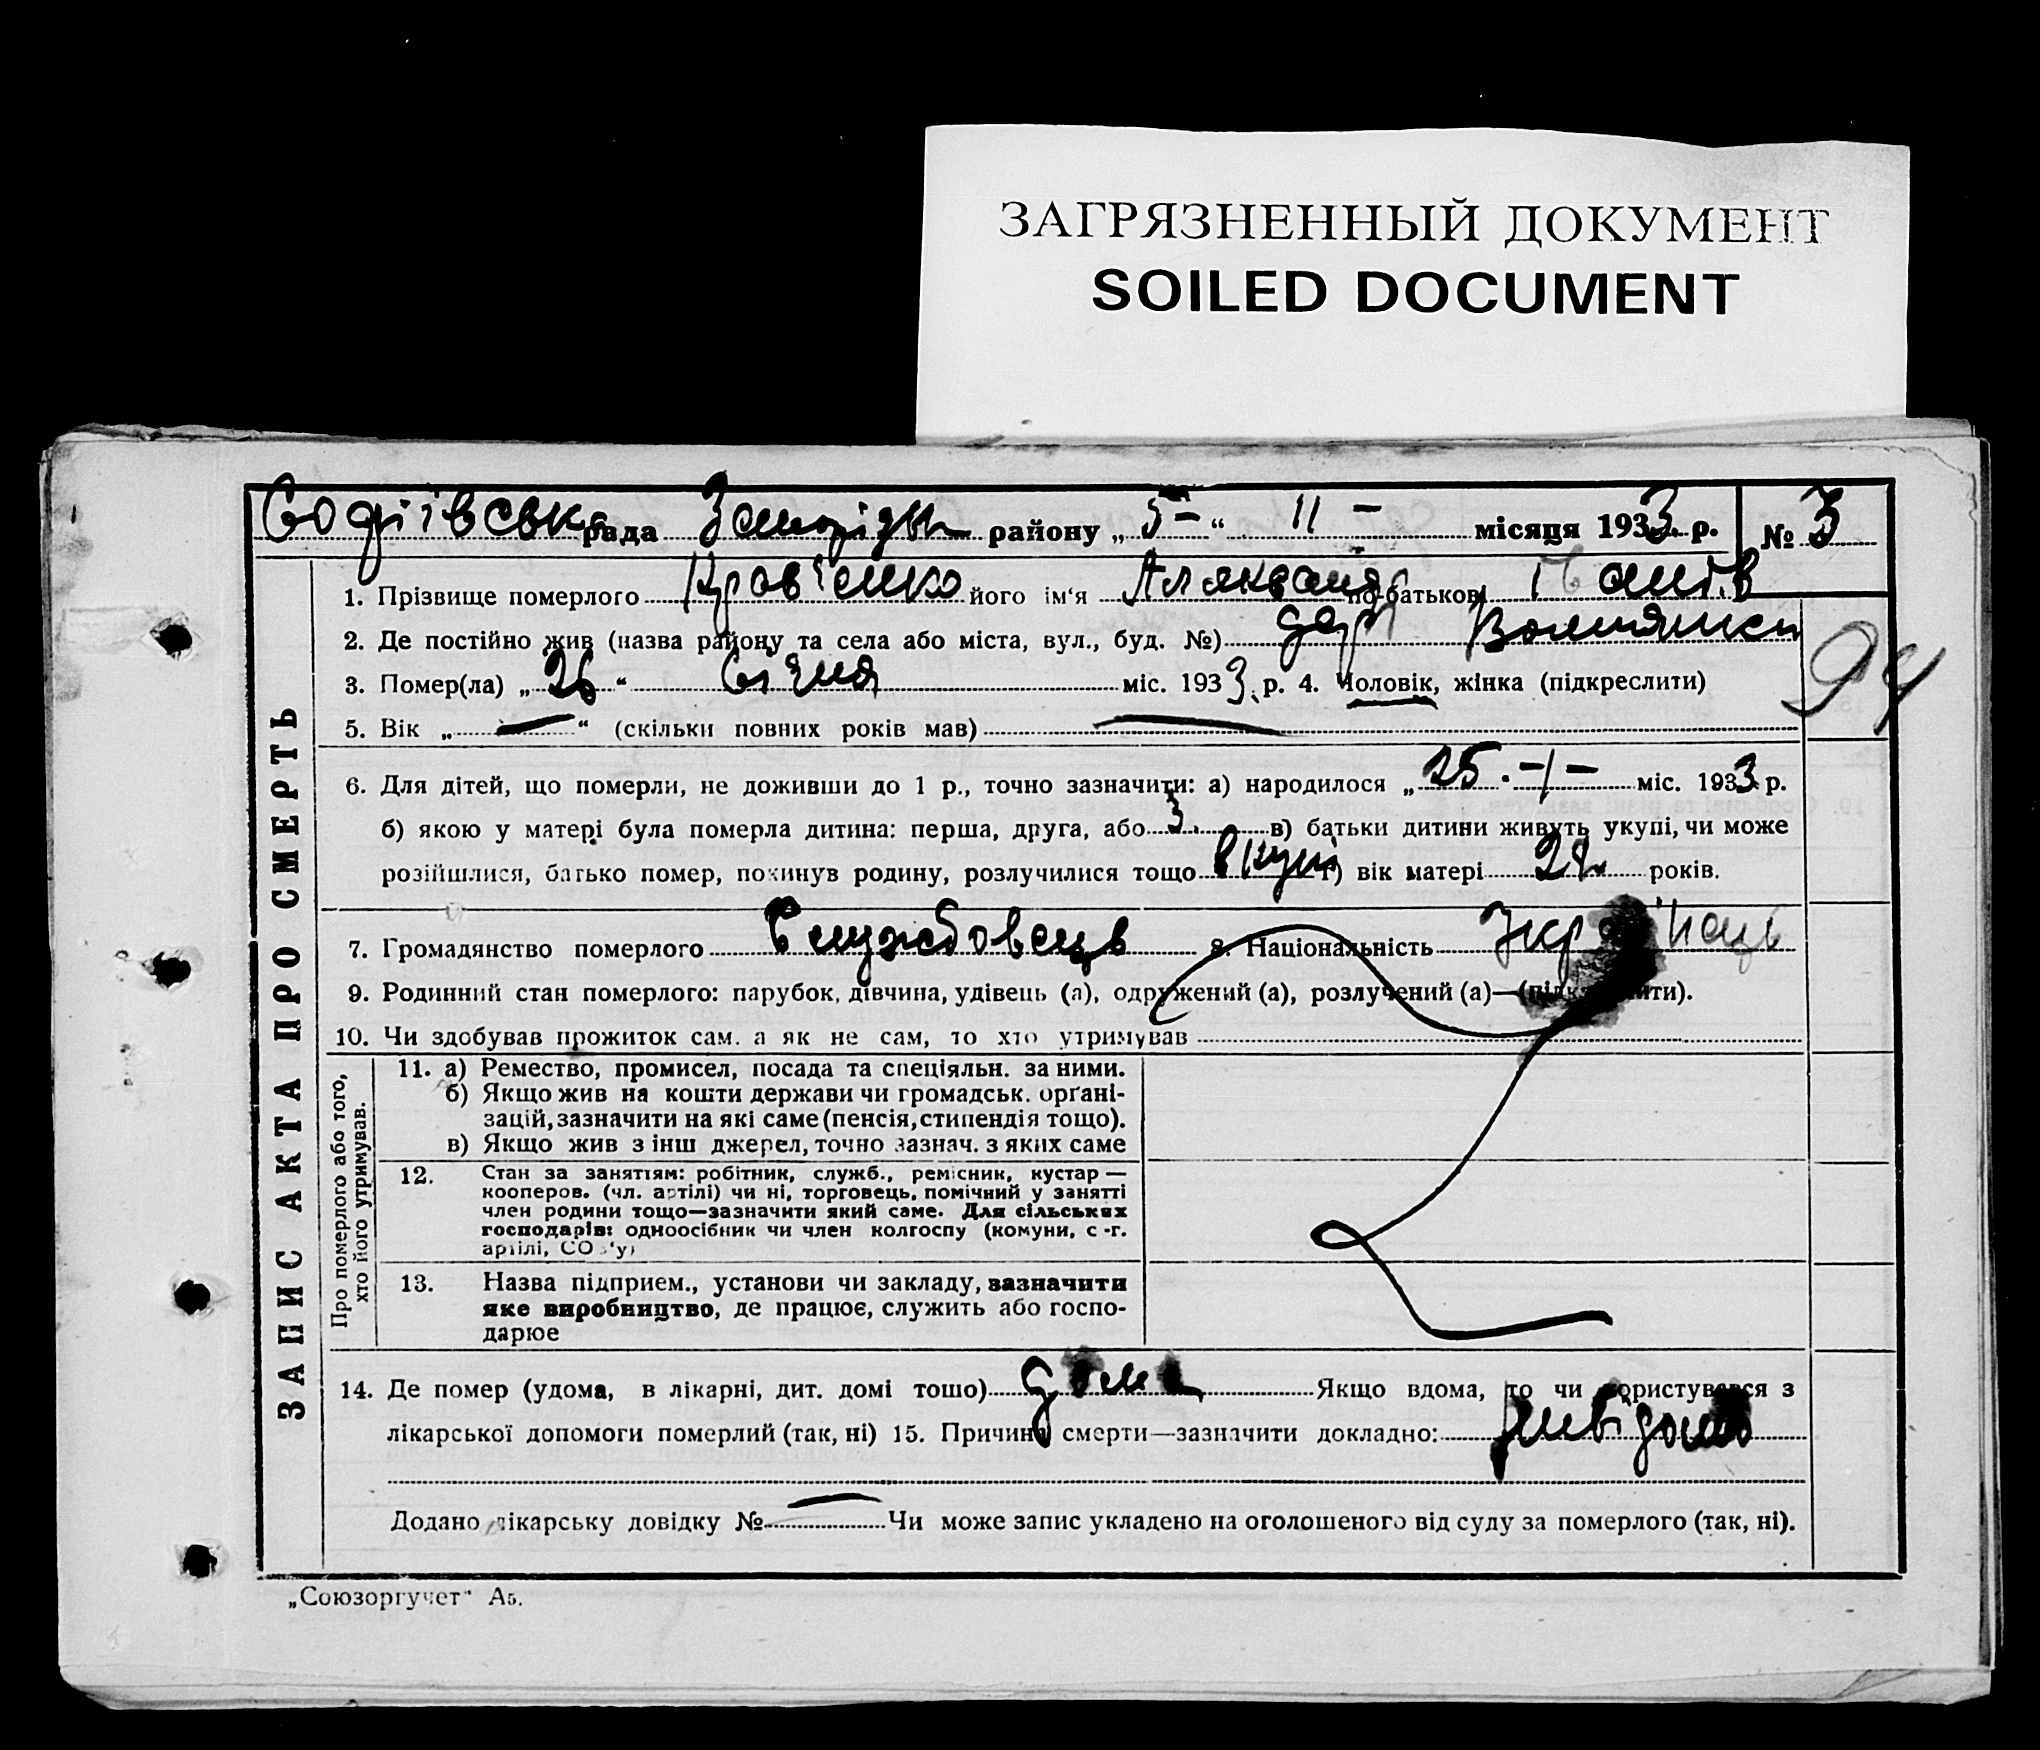 ЗАГРЯЗНЕННЫЙ ДОКУМЕНТ
SOILED DOCUMENT
Софіївська рада району „5–“ 11 – місяця 1933 р. № 3
1. Прізвище померлого його ім‘я по-батькові
2. Де постійно жив (назва району та села або міста, вул., буд. №)
3. Помер(ла) „26“ Січня міс. 1933 р. 4. Чоловік, жінка (підкреслити)
94
5. Вік „—“ (скільки повних років мав) —
6. Для дітей, що померли, не доживши до 1 р., точно зазначити: а) народилося „25.–1– міс. 1933 р.
б) якою у матері була померла дитина: перша, друга, або 3. в) батьки дитини живуть укупі, чи може
розійшлися, батько помер, покинув родину, розлучилися тощо вкупі г) вік матері років.
7. Громадянство померлого Службовець 8. Національність Українець
9. Родинний стан померлого: парубок, дівчина, удівець (а), одружений (а), розлучений (а)—(підкреслити).
10. Чи здобував прожиток сам. а як не сам, то хто утримував
Про померлого або того,
хто його утримував.
11. а) Ремество, промисел, посада та спеціяльн. за ними.
б) Якщо жив на кошти держави чи громадськ. орґані-
зацій, зазначити на які саме (пенсія, стипендія тощо).
в) Якщо жив з інш джерел, точно зазнач. з яких саме
12. Стан за заняттям: робітник, служб., ремісник, кустар —
кооперов. (чл. артілі) чи ні, торговець, помічний у занятті
член родини тощо—зазначити який саме. Для сільських
господарів: одноосібник чи член колгоспу (комуни, с.-г.
артілі, СОЗ‘у)
13. Назва підприєм., установи чи закладу, зазначити
яке виробництво, де працює, служить або госпо-
дарює
14. Де помер (удома, в лікарні, дит. домі тошо) дома Якщо вдома, то чи користувався з
лікарської допомоги померлий (так, ні) 15. Причина смерти—зазначити докладно:
Додано лікарську довідку № — Чи може запис укладено на оголошеного від суду за померлого (так, ні).
ЗАПИС АКТА ПРО СМЕРТЬ
„Союзоргучет“ А5.